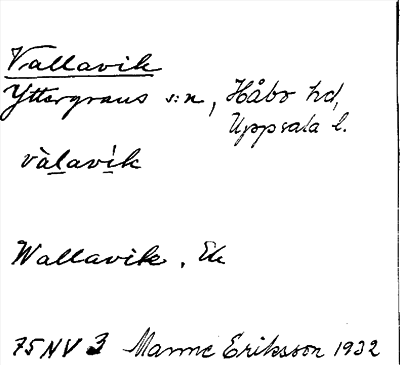 Vallavik
Yttergrans s:n, Håbo hd,
Uppsala l.
vàlavík
Wallavik. Ek
75 NV 3 Manne Eriksson 1932